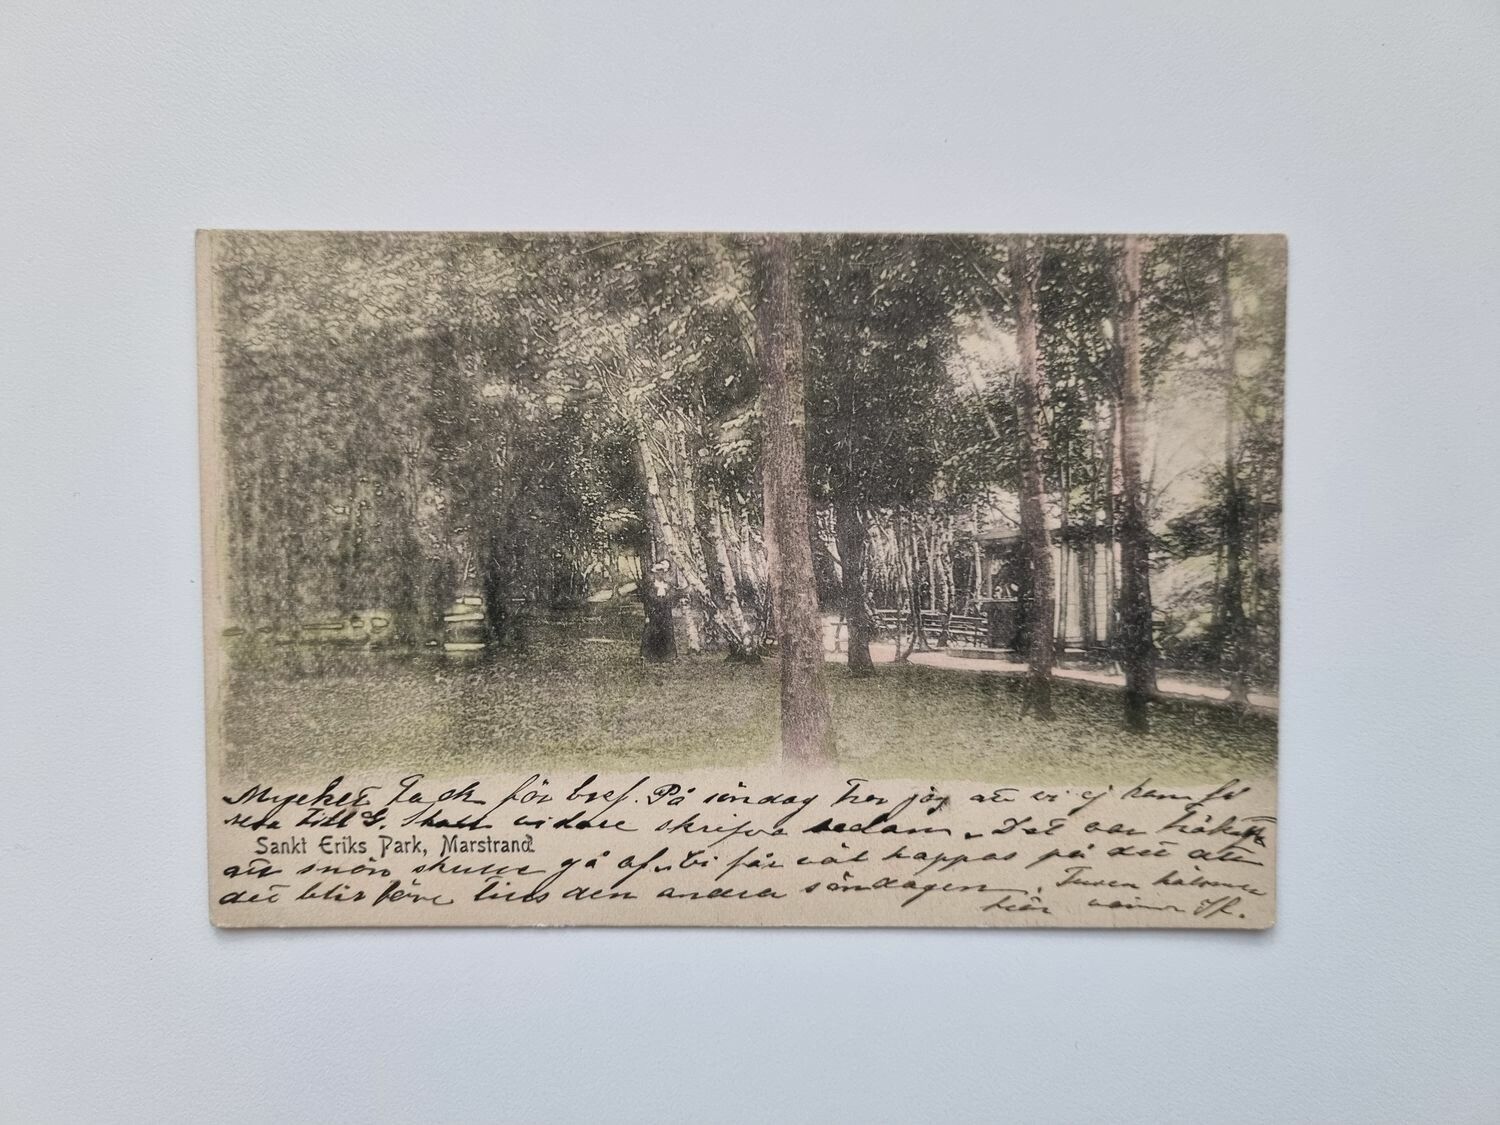 Mycket tack för bref. På söndag tror jag att vi ej kom få
resa till G. Skall vidare skrifva sedan. Det var
Sankt Eriks Park, Marstrand
att snön skulle gå af. Vi får väl hoppas på det att
det blir före tills den andra söndagen. Tusen hälsn
här